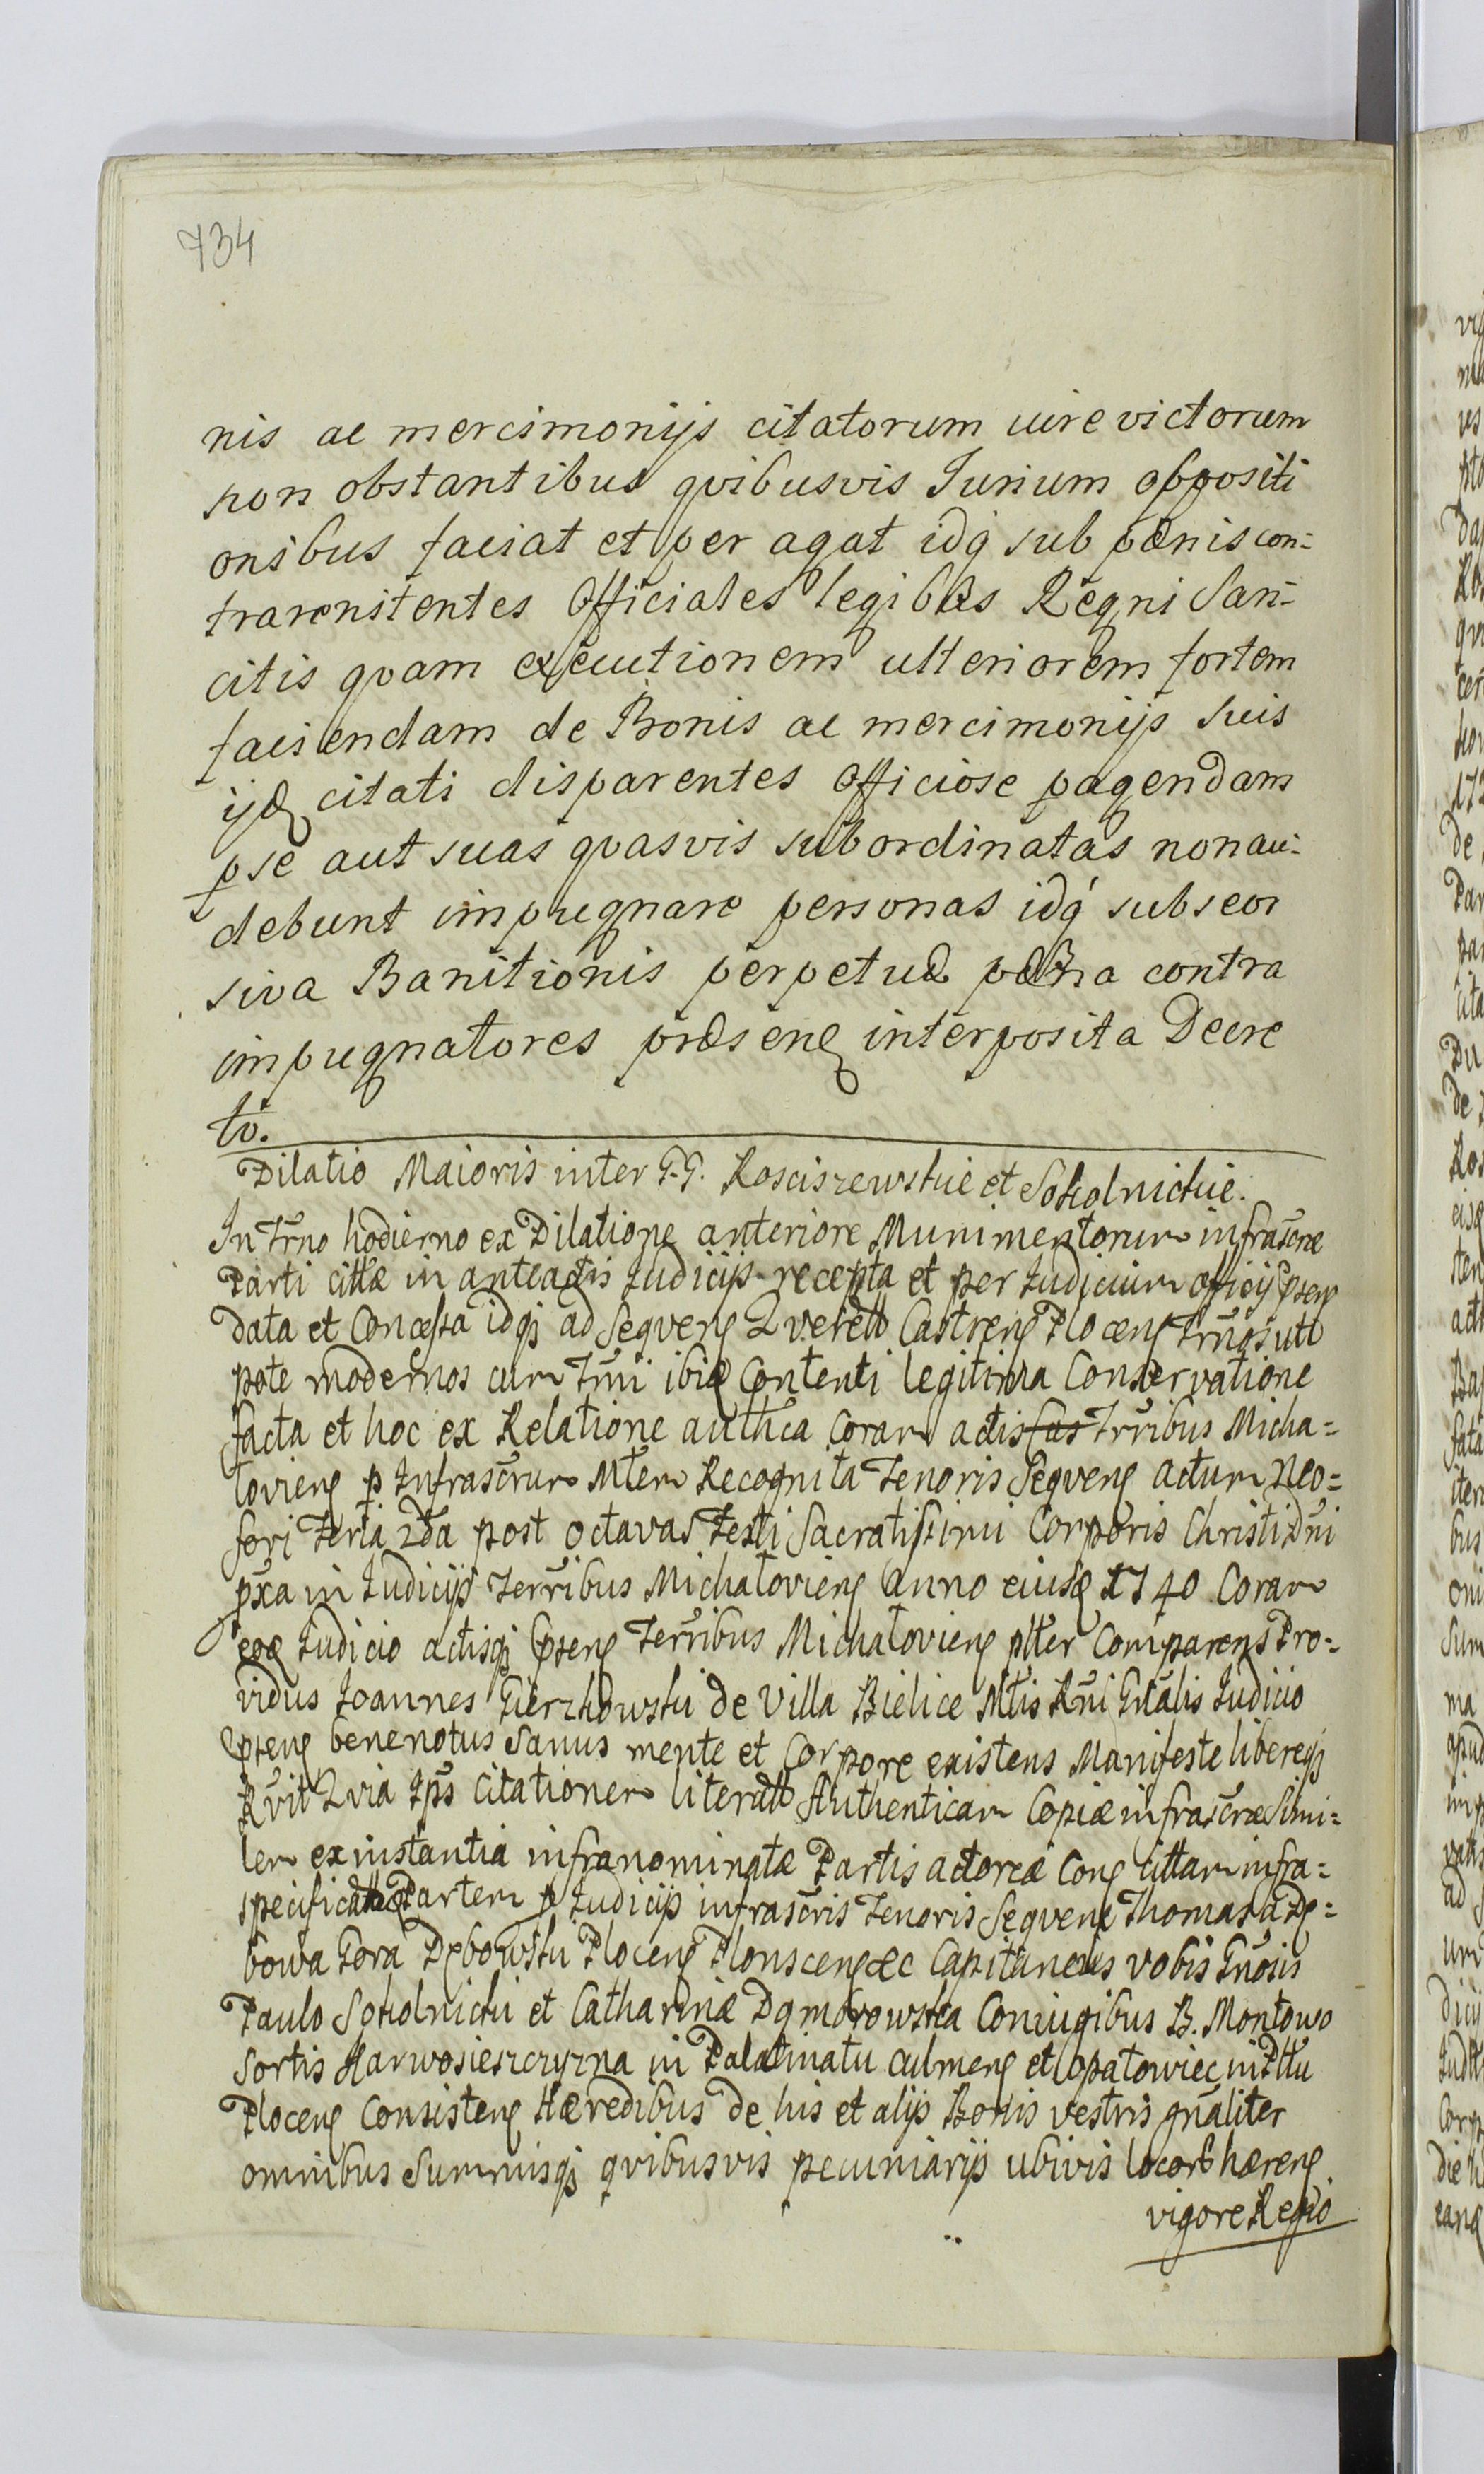 734
nis ac mercimonijs citatorum iure victorum
non obstantibus qvibusvis Iurium oppositi
onibus faciat et per agat idq́ sub pœnis con-
trarenitentes Officiales legibus Regni San-
citis qvam executionem ulteriorem fortem
faciendam de Bonis ac mercimonijs suis
citati disparentes Officiose pagendam
pse aut suas qvasvis subordinatas non au-
debunt impugnare personas idq́ subseor
siva Banitionis perpetuæ pœna contra
impugnatores præsenę interposita Decre
to.
Dilatio Maioris inter G.G. Kosciszewskie et Sokolnickie.
In Trño hodierno ex Dilatione anteriore Munimentorum infrascræ
Parti cittæ in anteactis Iudicijs recepta et per Iudicium officij
data et Concessa idqȝ ad Seqvenę Castrenę Plocenę Trños
pote modernos cum Trñi Contenti legitima Conservatione
facta et hoc ex Relatione authca Coram actis Trribus Micha=
lovienę p Infrascrum Mtem Recognita Tenoris Seqvenę Actum Neo=
fori Feria 2da post octavas Festi Sacratissimi Corporis Christi Dñi
pxa in Iudicijs Terribus Michalovienę Anno 1740 Coram
Iudicio actisqȝ Terribus Michalovienę Comparens Pro=
vidus Joannes de Villa Bielice Mtis Rni Gnalis Iudicio
benenotus Sanus mente et Corpore existens Manifeste libereqȝ
Rvit Qvia Ips Citationem Authenticam Copiæ infrascræ Simi=
lem ex instantia infranominatæ Partis actoreæ Conę Cittam infra=
Partem Iudicijs infrascris Tenoris Seqvenę Thomas a Dę=
bowa Gora Dębowski Plocenę Plonscenę Capitaneus vobis Gñosis
Paulo Sokolnicki et Catharinæ Dąmbrowska Coniugibus B. Montowo
Sortis in Palatinatu Culmenę et Opatowiec in Pttu
Plocenę Consistenę Hæredibus de his et alijs Bonis vestris gñaliter
omnibus Summisqȝ qvibusvis pecuniarijs ubivis hærenę
vigore Regio